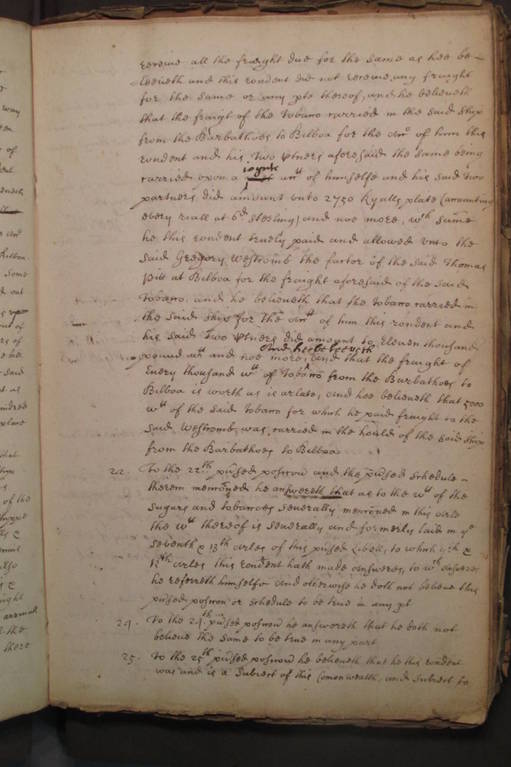 receive all the fraight due for the same as hee be-
leeveth and this rondent did not receive any fraight
for the same or any pte thereof, and he beleeveth
that the fraigt of the Tobaco carried in the said ship
from the Barbathoes to Bilboa for the accot of him this
rondent and his two ptners aforesaid the same being
carried upon a joynte acct of himselfe and his said two
partners did amount unto 2750 Ryalls plate (accounting
every riall at 6d sterling) and noe more, wch same
he this rondent truely paid and allowed unto the
said Gregory Westcomb the factor of the said Thomas
Pitt at Bilboa for the fraight aforesaid of the said
Tobaco. and he beleeveth that the tobaco carried in
the said ship for the accot of him this rondent and
his said two ptners did amount to eleven thousand
pound wt and noe more, and hee beleeveth and that the fraight of
Every thousand wt of Tobaco from the Barbathoes to
Bilboa is worth as is arlate, and hee beleeveth that 5000
wt of the said Tobaco for which he paid fraight to the
said Westcomb was carried in the hould of the said ship
from the Barbathoes to Bilboa
22. To the 22th posicon and the schedule
therein menconed he answereth that as to the wt of the
sugars and tobaccoes severally menconed in this arle
the wt thereof is severally and formerly laid in ye
seventh & 13th arles of this libell, to which 7th &
13th arles this rondent hath made answeres, to wch answeres
he referreth himselfe and otherwise he doth not beleeve this
posicon or schedule to be true in any pt
24. To the 24th posicon he answereth that he doth not
beleeve the same to be true in any part
25. To the 25th posicon he beleeveth that he this rondent
was and is a Subiect of this Comonwealth, and subiect to